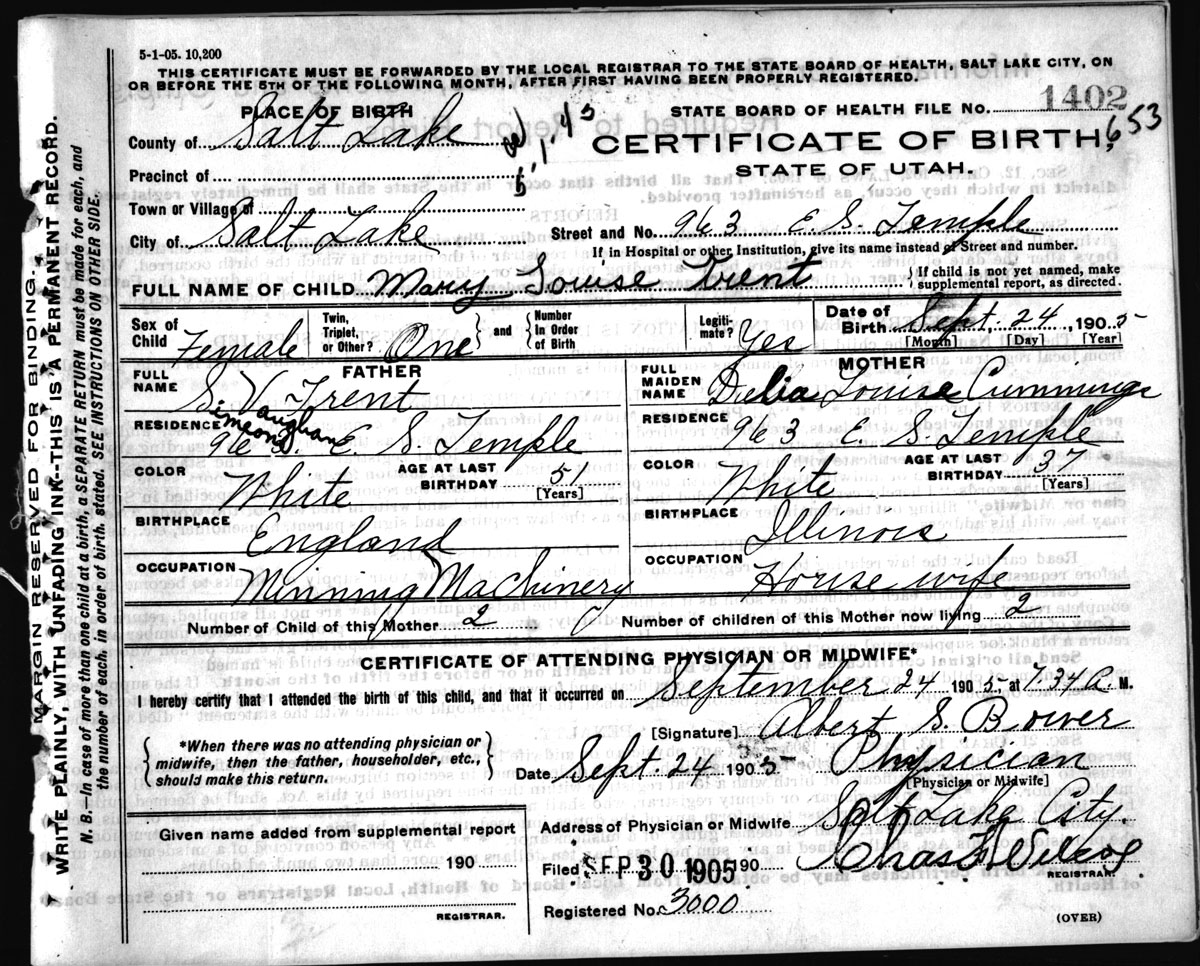 5-1-05. 10,200
THIS CERTIFICATE MUST BE FORWARDED BY THE LOCAL REGISTRAR TO THE STATE BOARD OF HEALTH, SALT LAKE CITY, ON
OR BEFORE THE 5TH OF THE FOLLOWING MONTH, AFTER FIRST HAVING BEEN PROPERLY REGISTERED.
PLACE OF BIRTH
STATE BOARD OF HEALTH FILE NO. 1402
653
County of Salt Lake
CERTIFICATE OF BIRTH,
Precinct of
STATE OF UTAH.
Town or Village of
City of Salt Lake Street and No. 963 E. S. Temple
If in Hospital or other Institution, give its name instead of Street and number.
FULL NAME OF CHILD Mary Louise Trent
{If child is not yet named, make
supplemental report, as directed.
Sex of Child Female
Twin, Triplet, or Other? One
and {Number In Order of Birth
Legiti-mate? Yes
Date of Birth Sept. 24, 1905
[Month] [Day] [Year]
FATHER
MOTHER
FULL NAME S. V. Trent
Simeon Vaughan
FULL MAIDEN NAME Delia Louise Cummings
RESIDENCE 963. E. S. Temple
RESIDENCE 963 E. S. Temple
COLOR White AGE AT LAST BIRTHDAY 51 [Years]
COLOR White AGE AT LAST BIRTHDAY 37 [Years]
BIRTHPLACE England
BIRTHPLACE Illinois
OCCUPATION Minning Machinery
OCCUPATION House wife
Number of Child of this Mother 2
Number of children of this Mother now living 2
CERTIFICATE OF ATTENDING PHYSICIAN OR MIDWIFE*
I hereby certify that I attended the birth of this child, and that it occurred on September 24 1905, at 7.34 A. M.
[Signature] Albert S. Bower
{*When there was no attending physician or
midwife, then the father, householder, etc.,
should make this return.}
Date Sept. 24 1905 Physician
[Physician or Midwife]
Address of Physician or Midwife Salt Lake City.
Given name added from supplemental report
190
REGISTRAR.
Filed SEP 30 1905 90
REGISTRAR.
Registered No. 3000
(OVER)
MARGIN RESERVED FOR BINDING.
WRITE PLAINLY, WITH UNFADING INK-THIS IS A PERMANENT RECORD.
N. B.—In case of more than one child at a birth, a SEPARATE RETURN must be made for each, and
the number of each, in order of birth, stated. SEE INSTRUCTIONS ON OTHER SIDE.